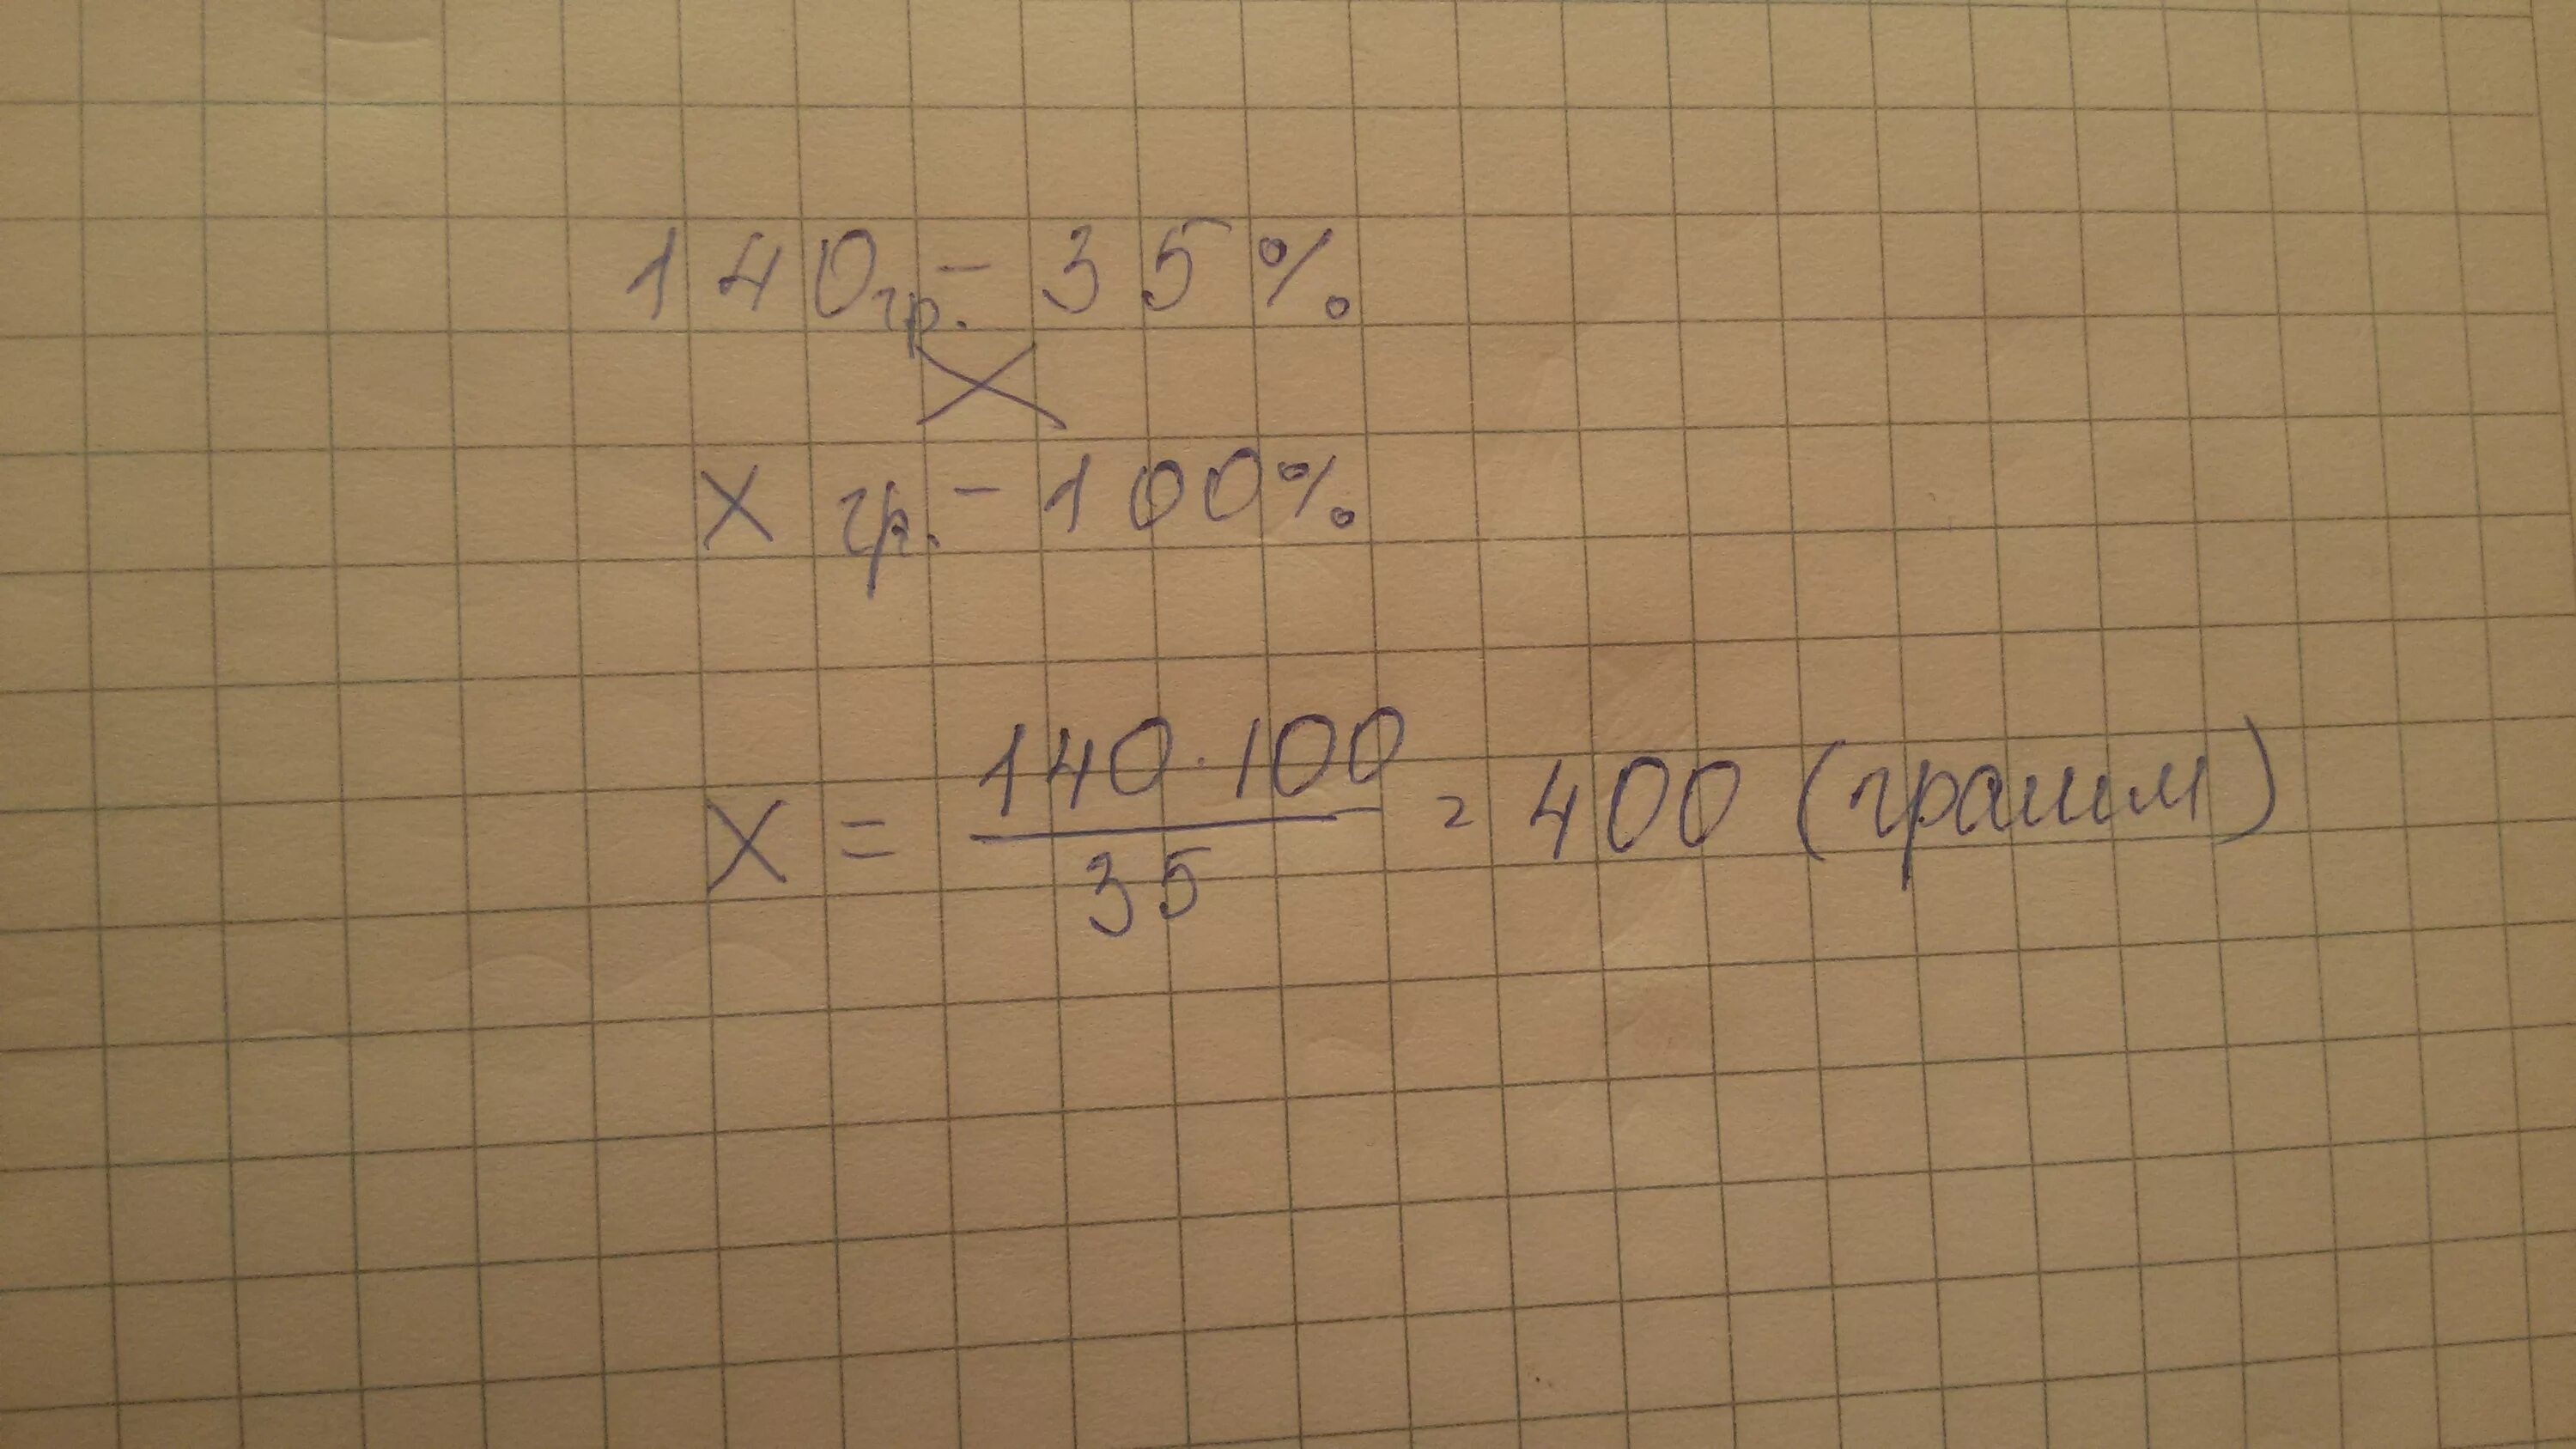 140гр. - 35%
х гр. - 100%
х = 140·100/35 = 400 (грамм)